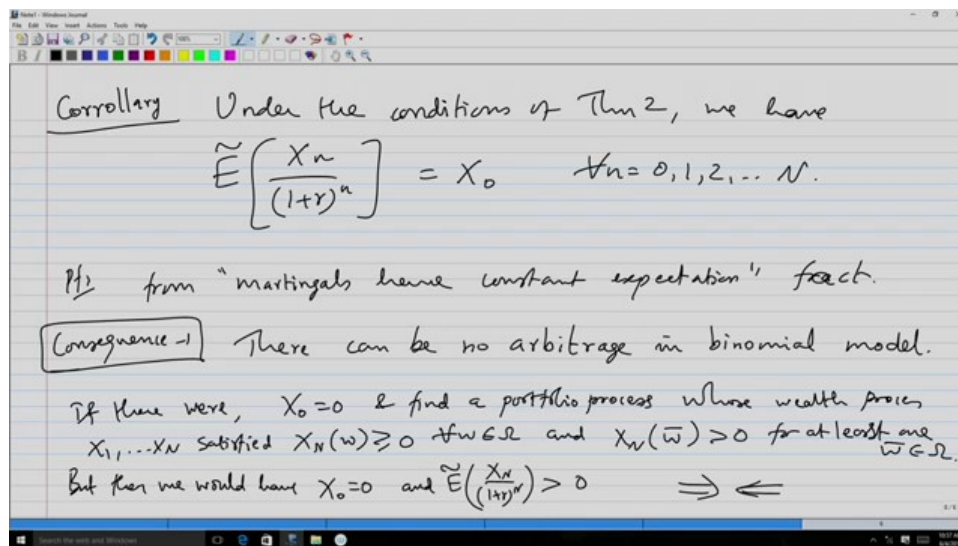 Note1 - Windows Journal
File Edit View Insert Actions Tools Help
Corrollary Under the conditions of Thm 2, we have
Ẽ[Xn/(1+r)^n] = X0 ∀n = 0,1,2,... N.
Pf: from "martingals have constant expectation" fact.
Consequence-1 There can be no arbitrage in binomial model.
If there were, X0=0 & find a portfolio process whose wealth process
X1,...XN satisfied XN(w)≥0 ∀w∈Ω and XN(w̄)>0 for at least one
w̄∈Ω.
But then we would have X0=0 and Ẽ(XN/(1+r)^N) > 0 ⇒⇐
Search the web and Windows